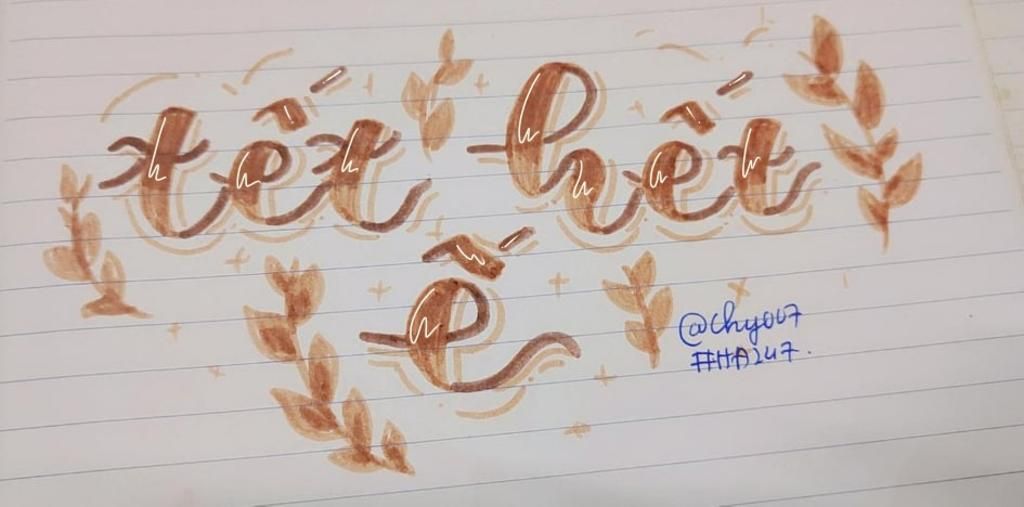 tết hết
ế
@chy007
#HA247.